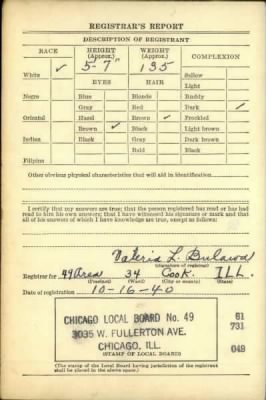 REGISTRAR'S REPORT
DESCRIPTION OF REGISTRANT
RACE HEIGHT (Approx.) WEIGHT (Approx.) COMPLEXION
White ✓ 5-7 135 Sallow
EYES HAIR Light
Negro Blue Blonde Ruddy
Gray Red Dark ✓
Oriental Hazel Brown ✓ Freckled
Brown ✓ Black Light brown
Indian Black Gray Dark brown
Bald Black
Filipino
Other obvious physical characteristics that will aid in identification
I certify that my answers are true; that the person registered has read or has had
read to him his own answers; that I have witnessed his signature or mark and that
all of his answers of which I have knowledge are true, except as follows:
Valeria L.
(Signature of registrar)
Registrar for 49 Area 34 Cook ILL.
(Precinct) (Ward) (City or county) (State)
Date of registration 10-16-40
CHICAGO LOCAL BOARD No. 49 61
3035 W. FULLERTON AVE. 731
CHICAGO, ILL. 049
(STAMP OF LOCAL BOARD)
(The stamp of the Local Board having jurisdiction of the registrant
shall be placed in the above space.)